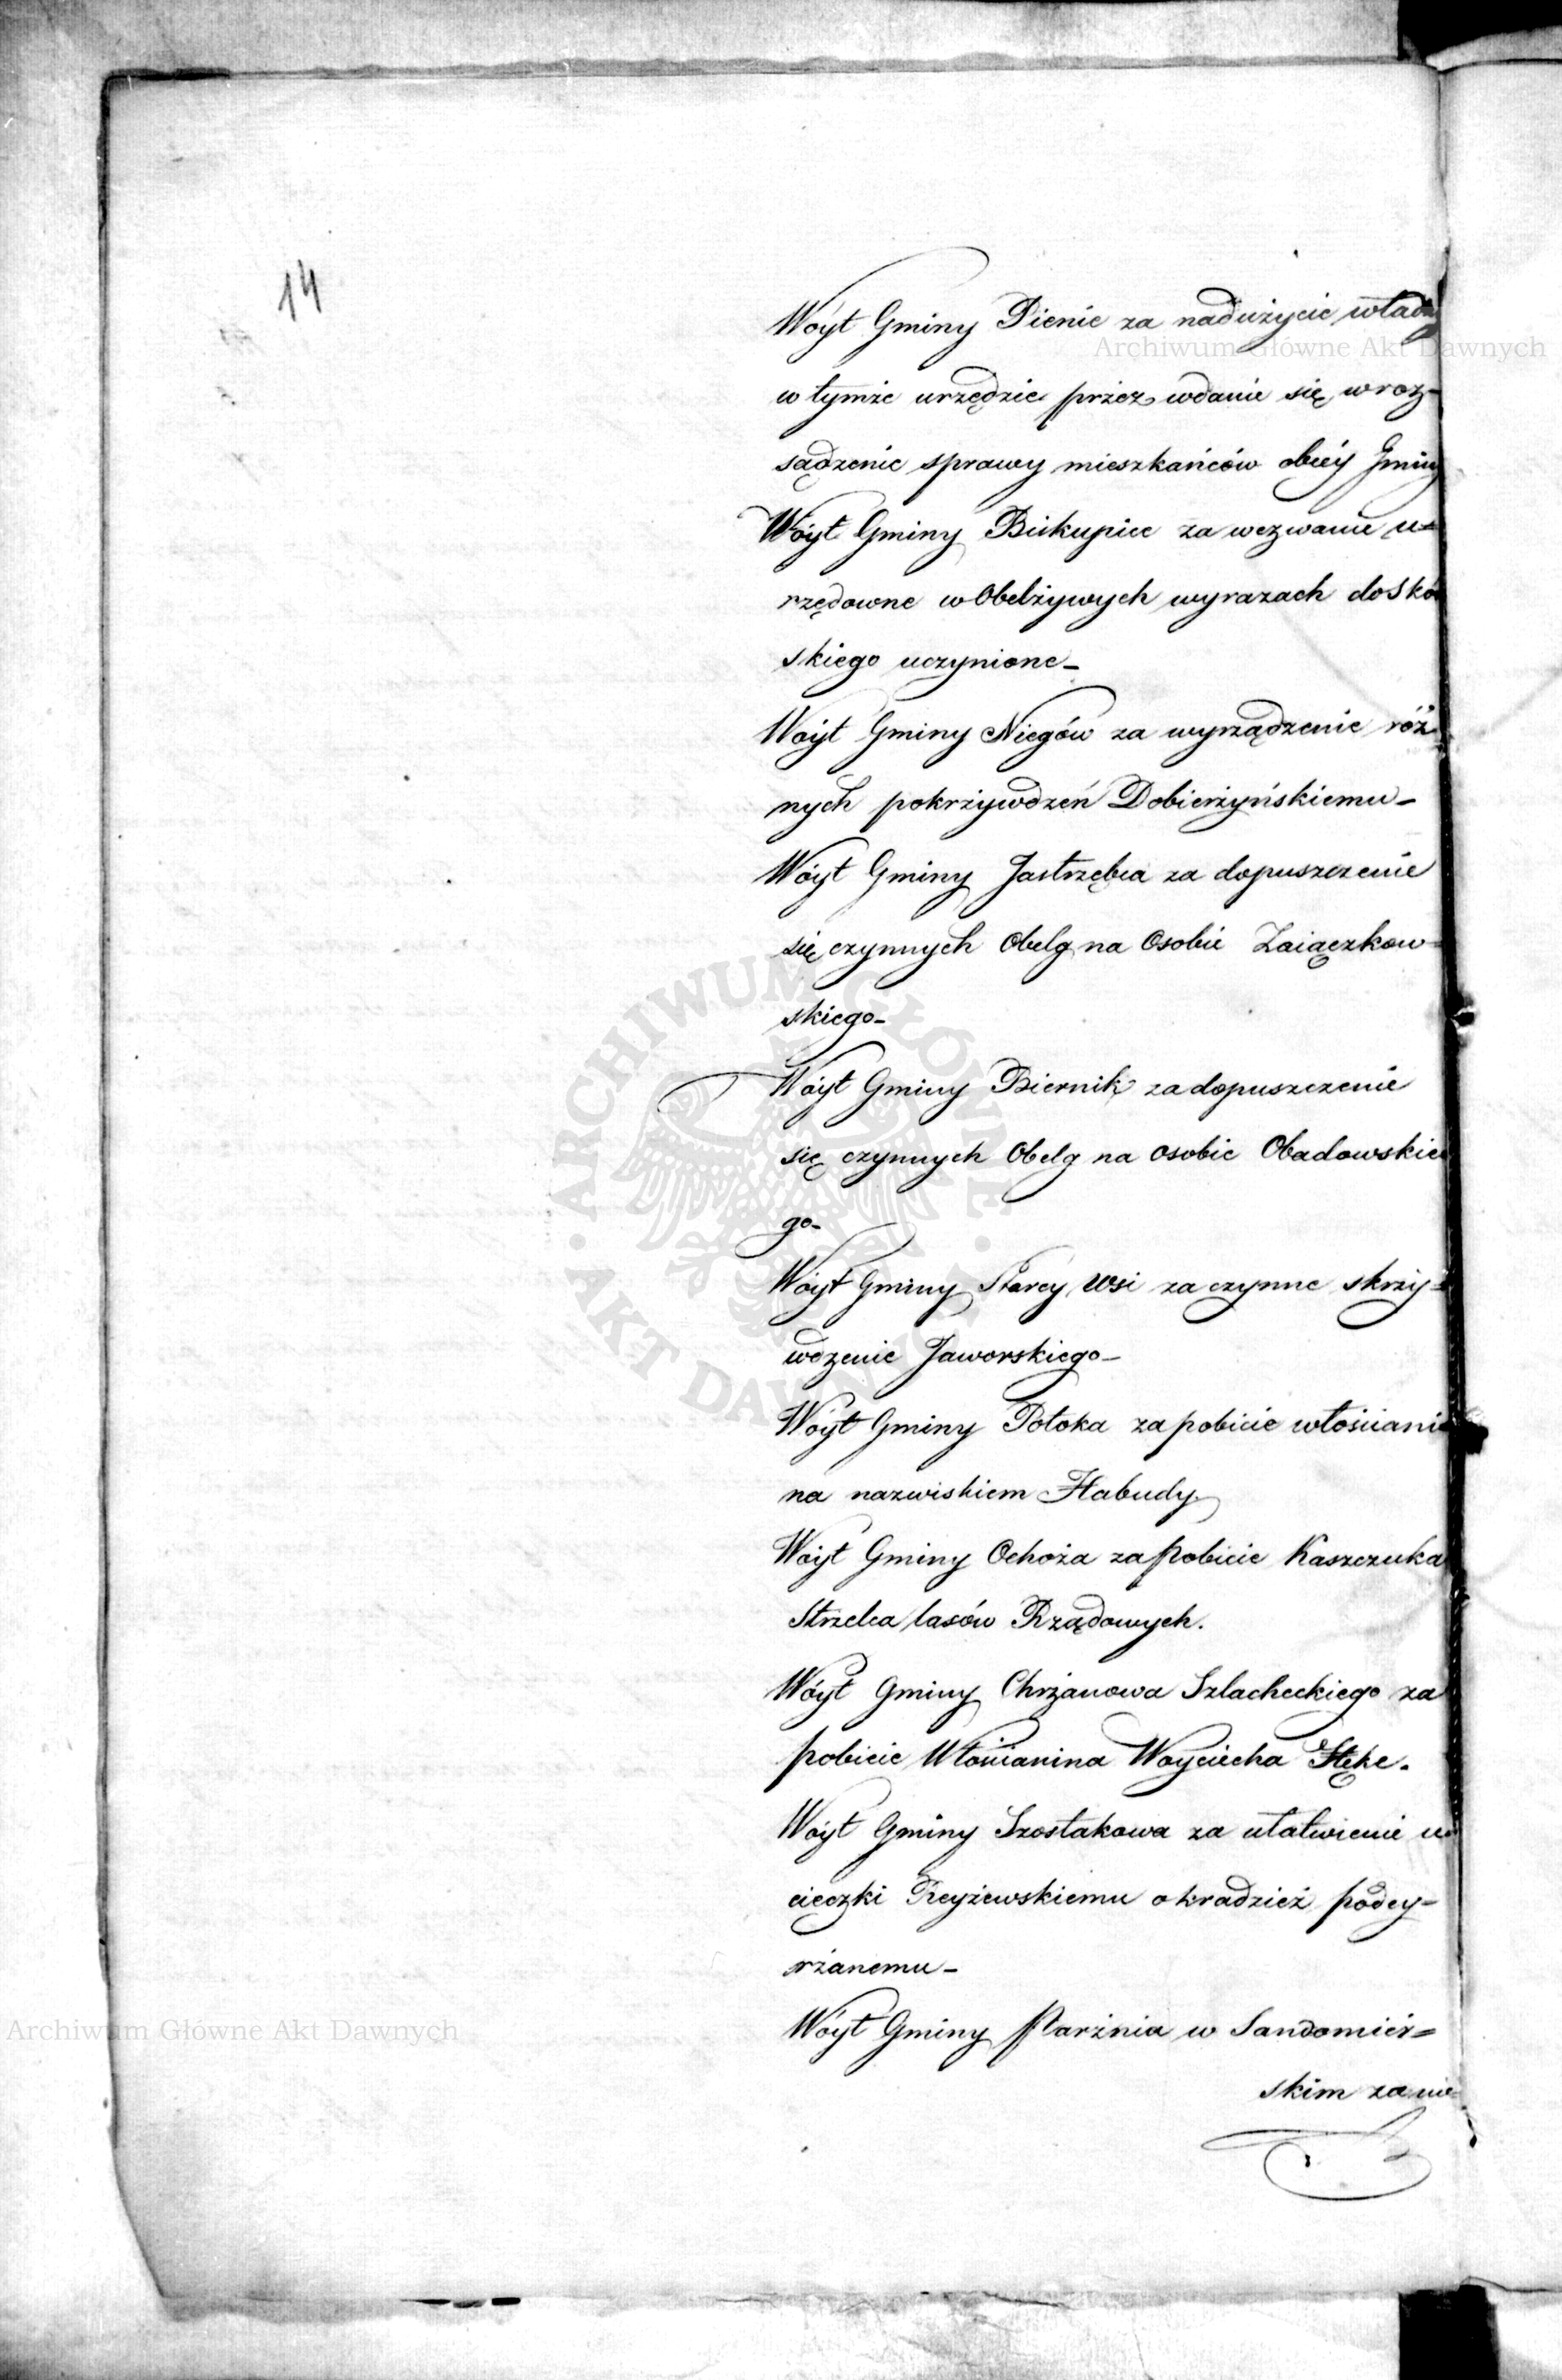 14
Wóyt Gminy Pienie za nadużycie władzy
w tymże urzędzie przez wdanie się w roz-
sądzenie sprawy mieszkańców obcéy Gminy
Wóyt Gminy Biskupice za wezwanie u=
rzędowne w Obelżywych wyrazach do Skór
skiego uczynione_
Wóyt Gminy Niegów za wyrządzenie róż
nych pokrzywdzeń Dobierzyńskiemu_
Wóyt Gminy Jastrzębia za dopuszczenie
się czynnych Obelg na Osobie Zaiączkow=
skiego_
Wóyt Gminy Biernik za dopuszczenie
się czynnych Obelg na osobie Obadowskie
go_
Wóyt Gminy Starey Wsi za czynne skrzy=
wdzenie Jaworskiego_
Wóyt Gminy Potoka za pobicie włościani
na nazwiskiem Habudy
Wóyt Gminy Ochoża za pobicie Kaszczuka
Strzelca lasów Rządowych.
Wóyt Gminy Chrzanowa Szlacheckiego za
pobicie Włościanina Woyciecha
Wóyt Gminy Szostakowa za ułatwienie u
cieczki Reyżewskiemu o kradzież podey=
rzanemu_
Wóyt Gminy Parźnia w Sandomiér=
skim za nie
Archiwum Główne Akt Dawnych
ARCHIWUM GŁÓWNE AKT DAWNYCH
Archiwum Główne Akt Dawnych